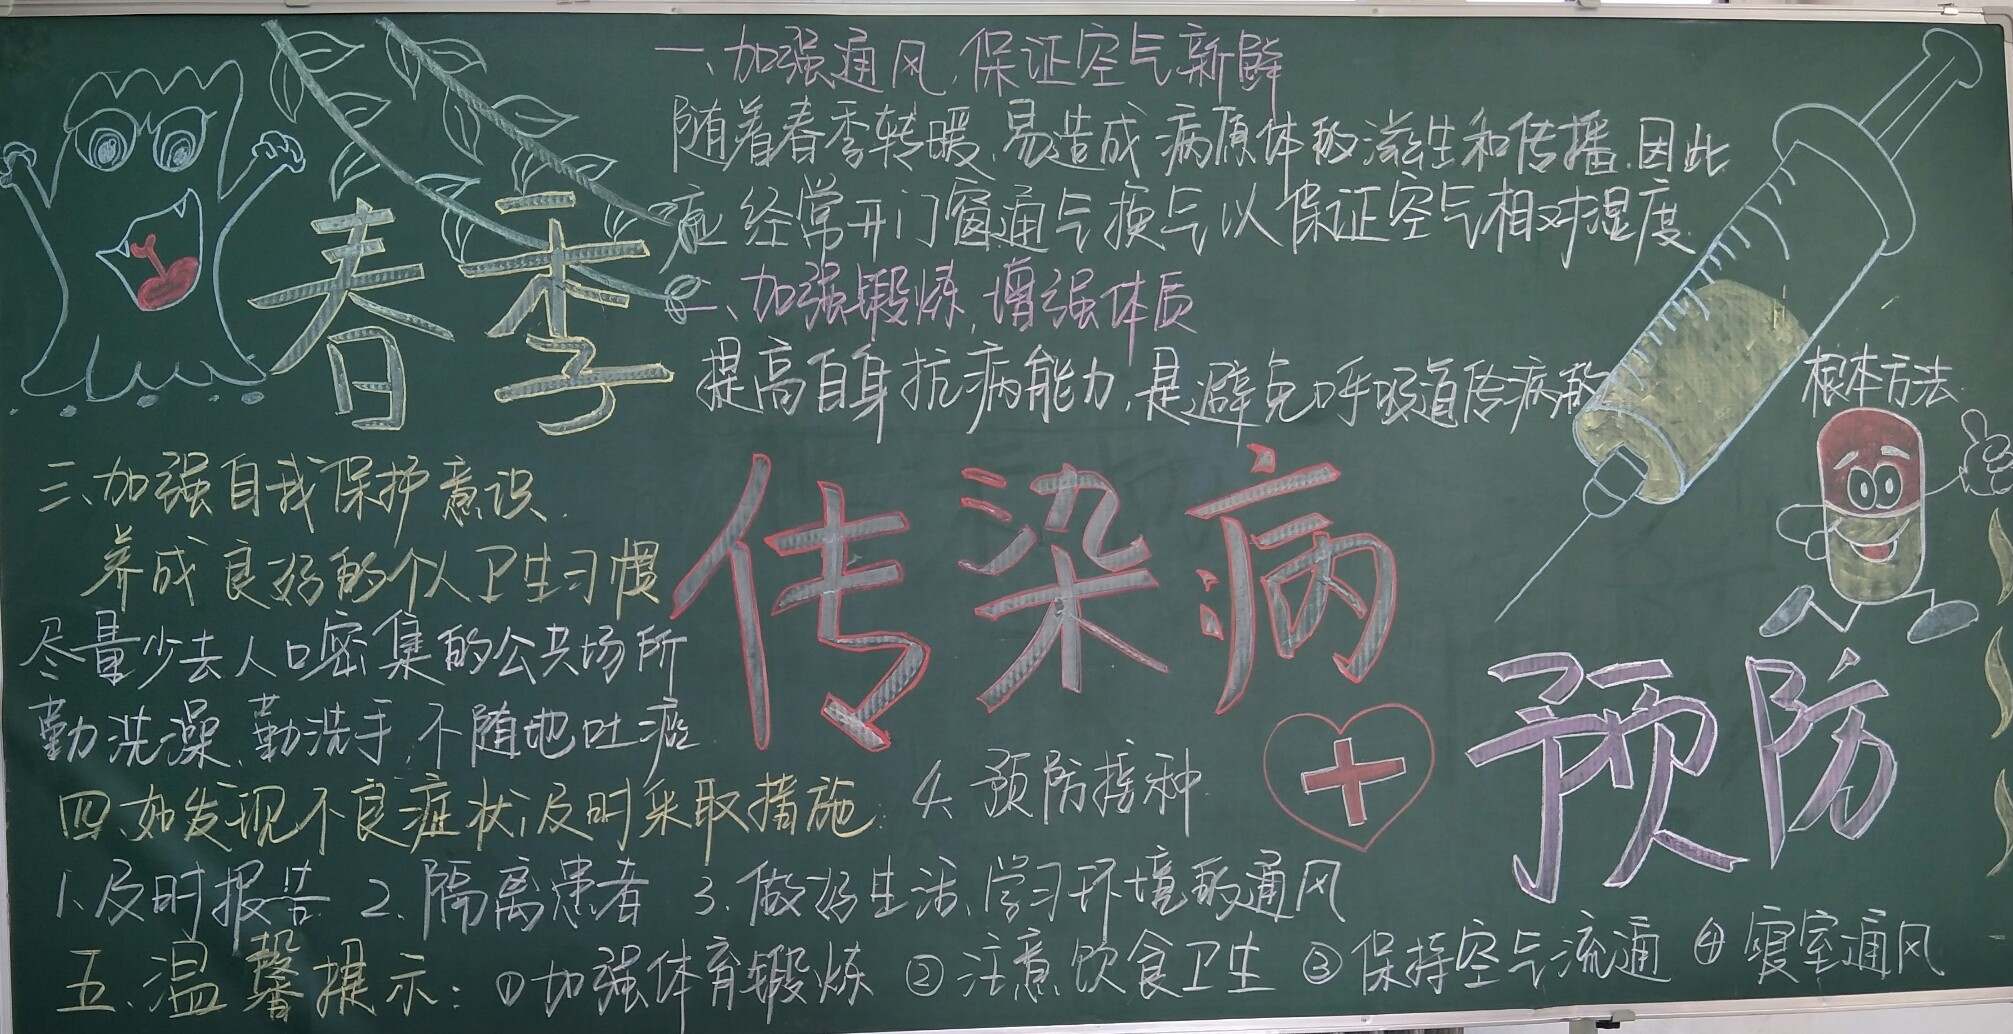 春季
传染病
预防
一、加强通风,保证空气新鲜
随着春季转暖、易造成病原体的滋生和传播,因此
应经常开门窗通气换气以保证空气相对湿度.
二、加强锻炼,增强体质
提高自身抗病能力,是避免呼吸道传病的
根本方法.
三、加强自我保护意识.
养成良好的个人卫生习惯
尽量少去人口密集的公共场所
勤洗澡,勤洗手,不随地吐痰
四、如发现不良症状,及时采取措施:
1、及时报告 2、隔离患者 3、做好生活、学习环境的通风
4、预防接种
五、温馨提示: ①加强体育锻炼 ②注意饮食卫生 ③保持空气流通 ④寝室通风